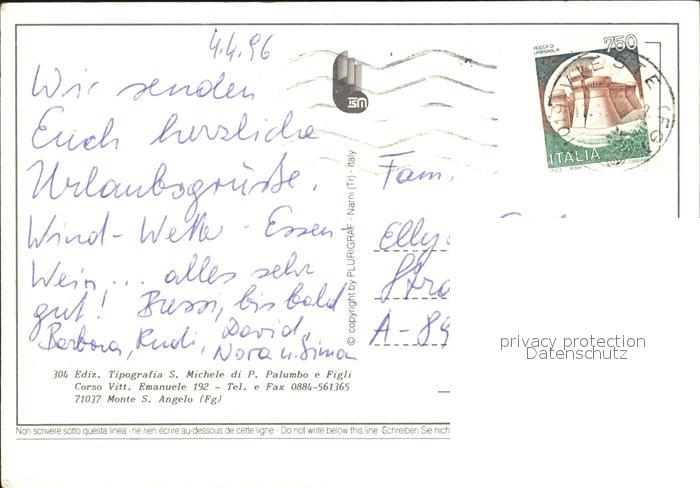 4.4.96
Wir senden
Euch herzliche
Urlaubsgrüße.
Wind - Wetter - Essen -
Wein... alles sehr
gut! Bussi, bis bald
Barbara, Rudi, David,
Nora u. Simon
304 Ediz. Tipografia S. Michele di P. Palumbo e Figli
Corso Vitt. Emanuele 192 - Tel. e Fax 0884-561365
71037 Monte S. Angelo (Fg)
Non scrivere sotto questa linea - ne rien écrire au-dessous de cette ligne - Do not write below this line - Schreiben Sie nich
© copyright by PLURIGRAF - Narni (Tr) - Italy
ROCCA DI
URBISAGLIA
750
ITALIA
Fam.
Elly
A-84
privacy protection
Datenschutz